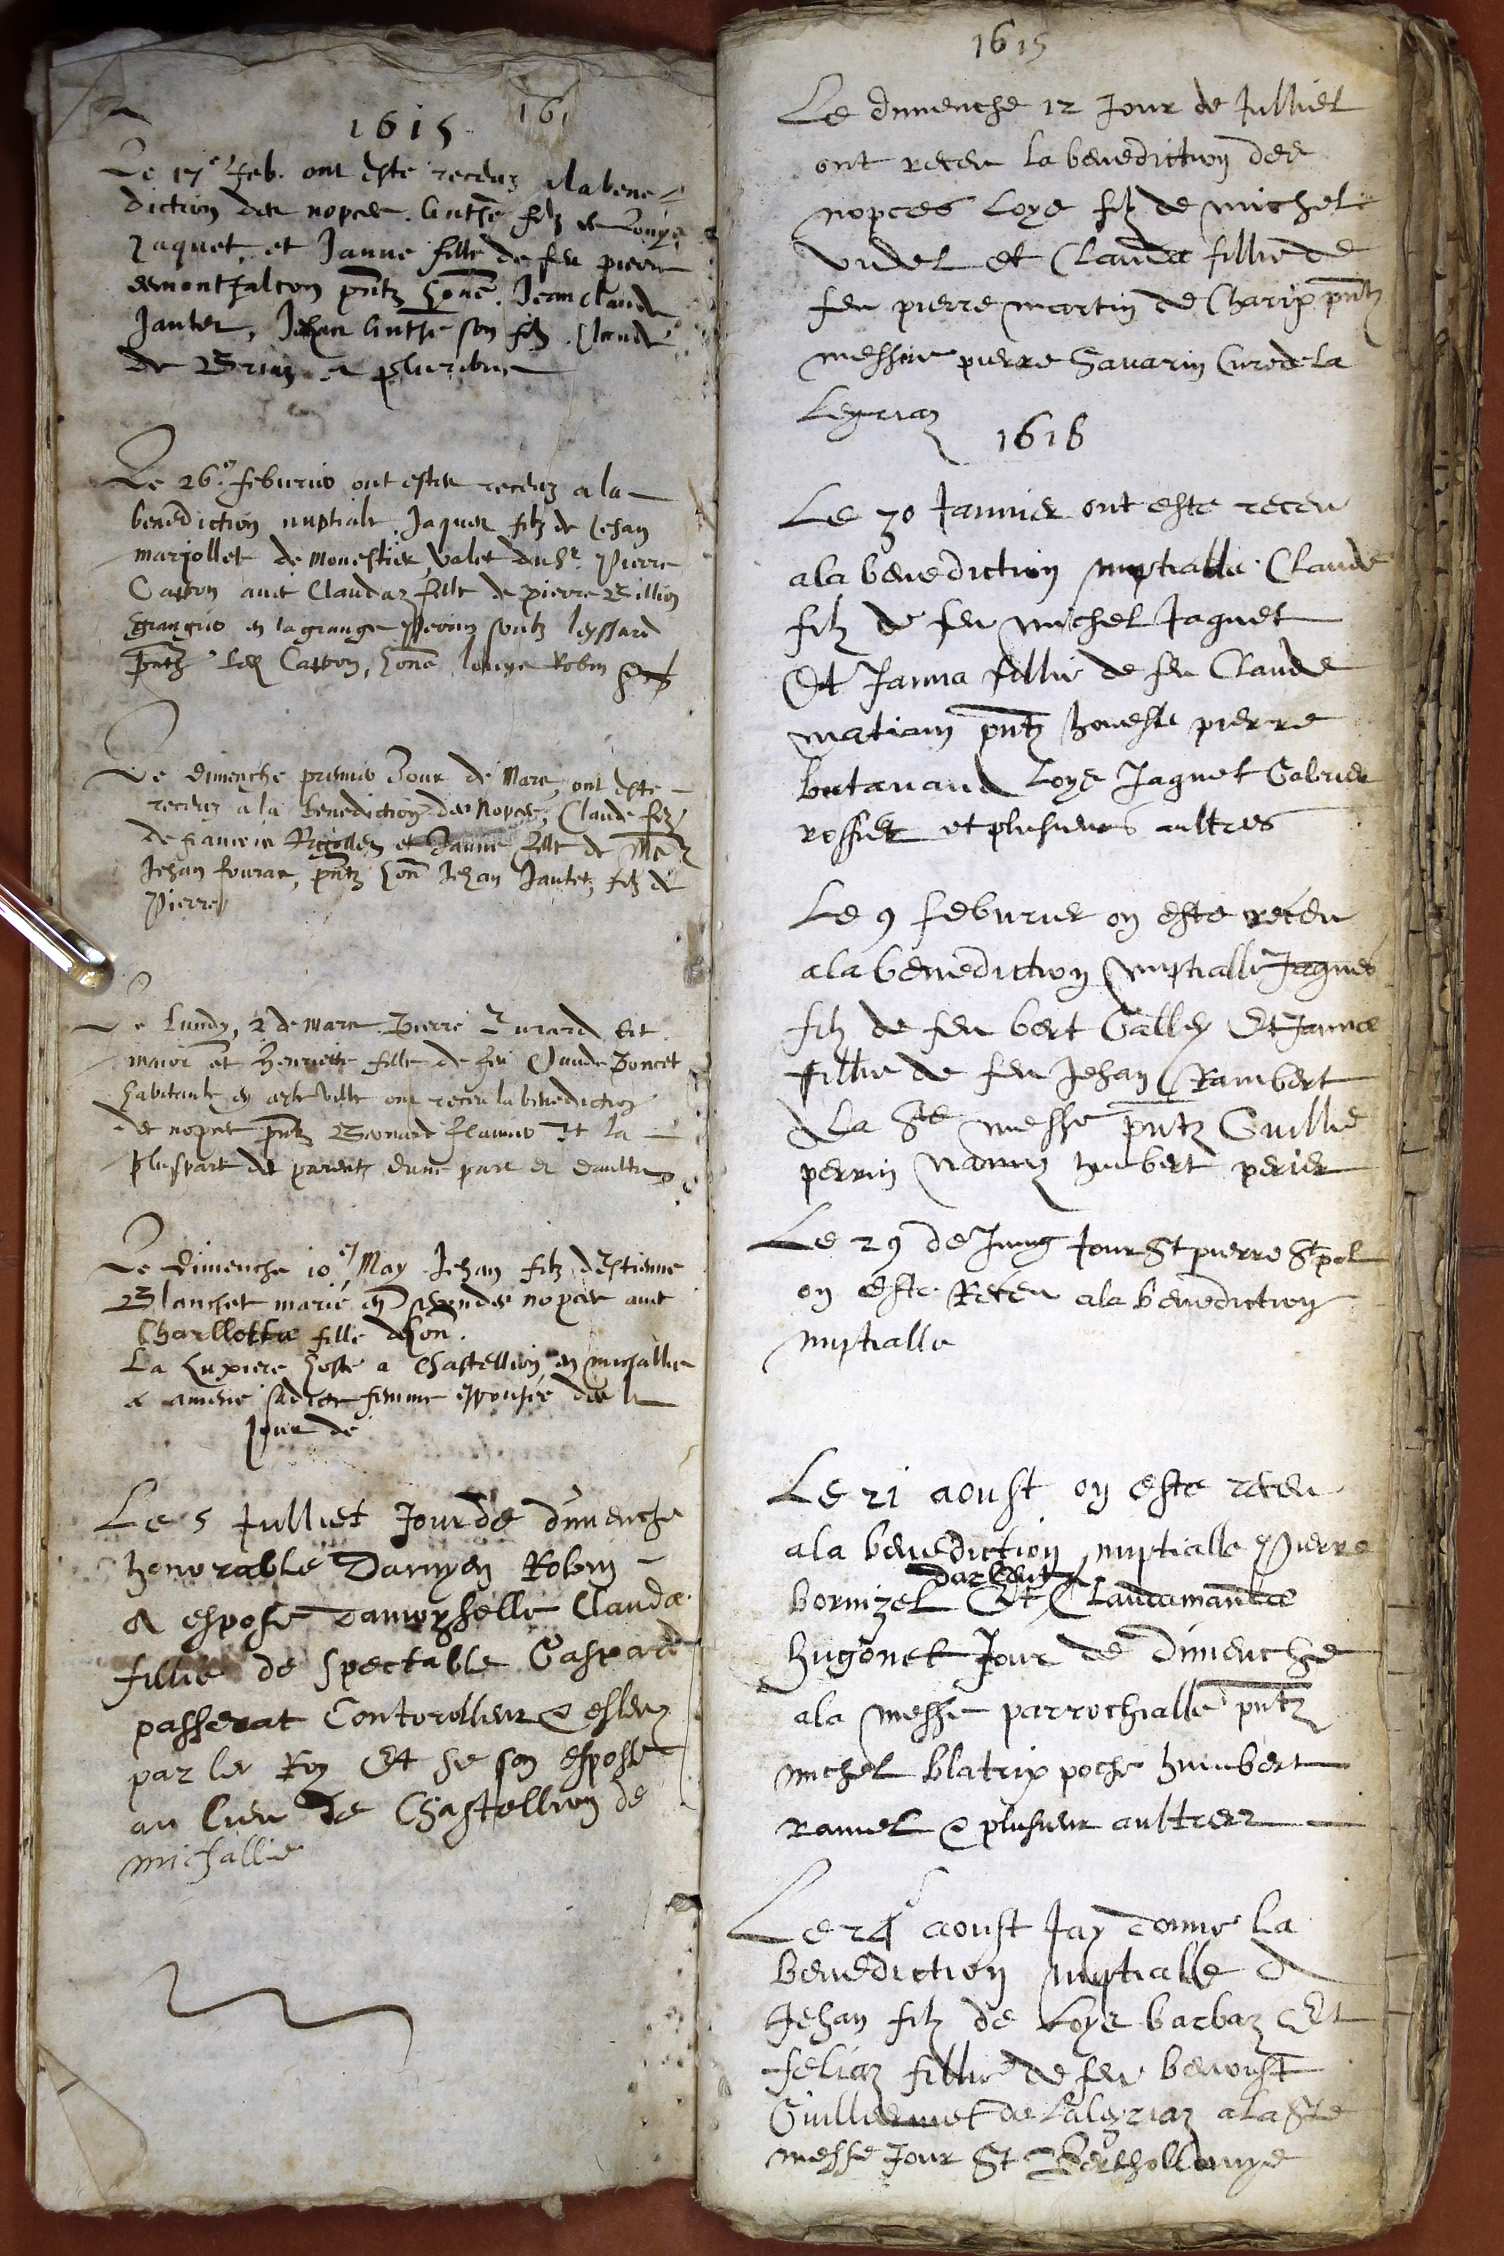 1615 16
Le 17e feb. ont este receuz a la bene-
diction des nopces. Anthe filz de Louys
Jaquet, et Janne fille de feu pierre
demontfalcon pntz hone. Jean claude
Jantet, Jehan Anthe son filz. Claude
de Brion et plusieurs
Le 26e feburier ont estes receuz a la
benediction nuptiale Jaques filz de Jehan
marjollet de Monestier, valet du Sr. Pierre
Carron avec Claudaz fille de pierre Billion
grangier en la grange Perrin soubz leyssard
pntz led Carron, hone louys Robin
Le dimenche premier Jour de Mars, ont este
receuz a la benediction des Nopces, Claude filz
de francois Rigollet et Janne fille de Me
Jehan fourar, pntz hon Jehan Jantet, filz de
Pierre
Le lundy, 2 de mars Pierre Durard dit
maior et Henriette fille de feu Claude Poncet
habitante en ceste ville ont receu la benediction
de nopces pntz Bernard flamier et la
pluspart de parentz dune part et daultre
Le dimenche 10e May Jehan filz destienne
Blanchet marié en secondes nopces avec
Charllotte fille de hon.
La Luxiere hoste a Chastellion en michallie
a amene sadicte femme espousée des le
Jour de
Le 5 Julliet Jour de dimenche
honorable Damyen Robin
a espose Damoyselle Clauda
fillie de spectable Gaspard
passerat Contorolleur & esleuz
par le Roy Et se son esposse
au lieu de Chastellion de
michallie
1615
Le dimenche 12 Jour de Julliet
ont receu la benediction des
nopces Loys filz de michel
vudel et Clauda fillie de
feu pierre martin de Charix pntz
messire pierre Savarin Cure de la
Leyriaz
1616
Le 30 Janvier ont este receu
a la benediction nuptialle Claude
filz de feu michel Jaquet
Et Janna fillie de feu Claude
matiam pntz honeste pierre
butavand Loys Jaquet Gabriel
rossiet et plusieurs aultres
Le 9 feburier on este receu
a la benediction nuptialle Jaques
filz de feu bert Galley Et Janna
fillie de feu Jehan Rambert
a la Ste messe pntz Guillie
perrin humbert perier
Le 29 de Juing Jour St pierre St pol
on este Receu a la benediction
nuptialle
Le 21 aoust on este receu
a la benediction nuptialle Pierre
darlent
bornizel Et Claudamanda
hugonet Jour de dimenche
a la messe parrochialle pntz
michel blatrix poche humbert
Ramel & plusieur aultres
Le 24 aoust Jay donne la
benediction nuptialle a
Jehan filz de Loys barbaz Et
feliaz fillie de feu benoist
Guillermet de Laleyriaz a la Ste
messe Jour St Berthollomye